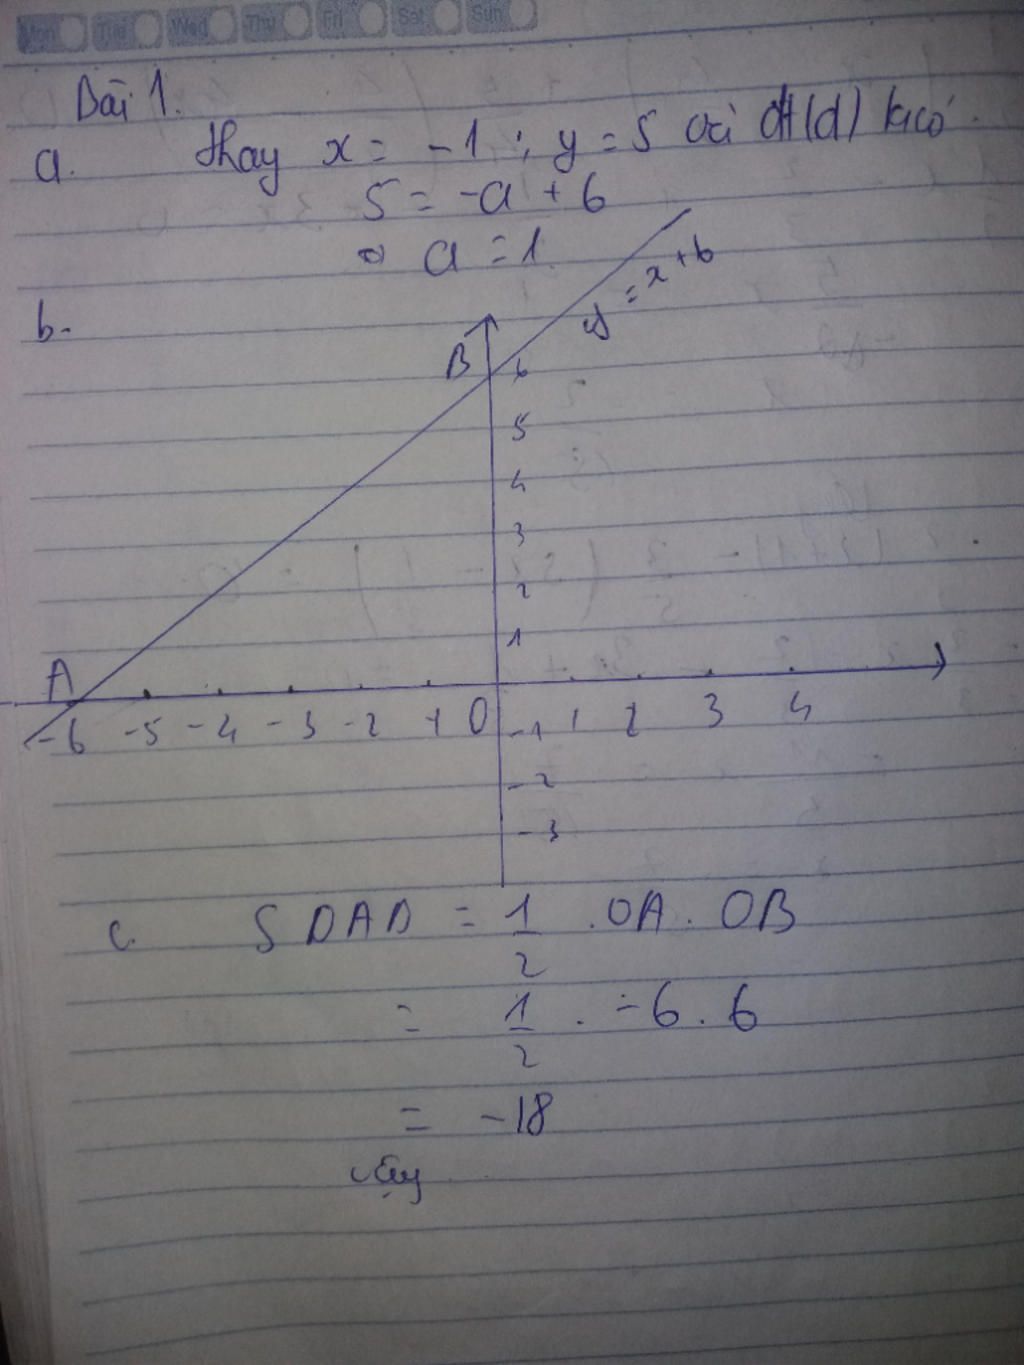 Mon Tue Wed Thu Fri Sat Sun
Bài 1.
a. thay x = -1 ; y = 5 vài đt (d) ta có
5 = -a + 6
⇔ a = 1
b.
y = x + 6
B 6
5
4
3
2
1
A
-6 -5 -4 -3 -2 -1 0 1 2 3 4
-1
-2
-3
c. S OAB = 1/2 . OA . OB
= 1/2 . -6 . 6
= -18
Vậy